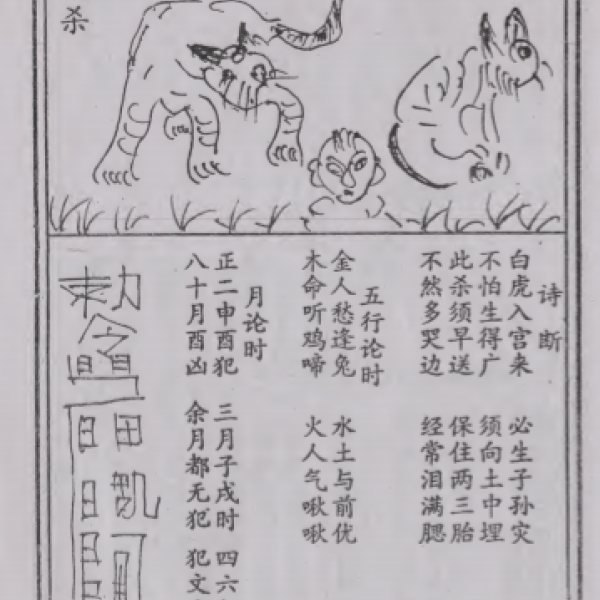 杀
诗断
白虎入宫来 必生子孙灾
不怕生得广 须向土中埋
此杀须早送 保住两三胎
不然多哭边 经常泪满腮
五行论时
金人愁逢兔 水土与前优
木命听鸡啼 火人气啾啾
月论时
正二申酉犯 三月子戌时 四六
八十月酉凶 余月都无犯 犯文
敕令